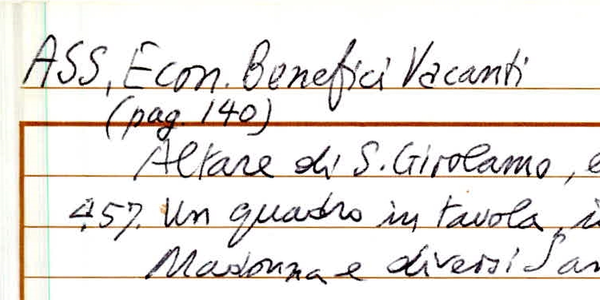 ASS, Econ. Benefici Vacanti
(pag. 140)
Altare di S. Girolamo,
457. Un quadro in tavola,
Madonna e diversi San